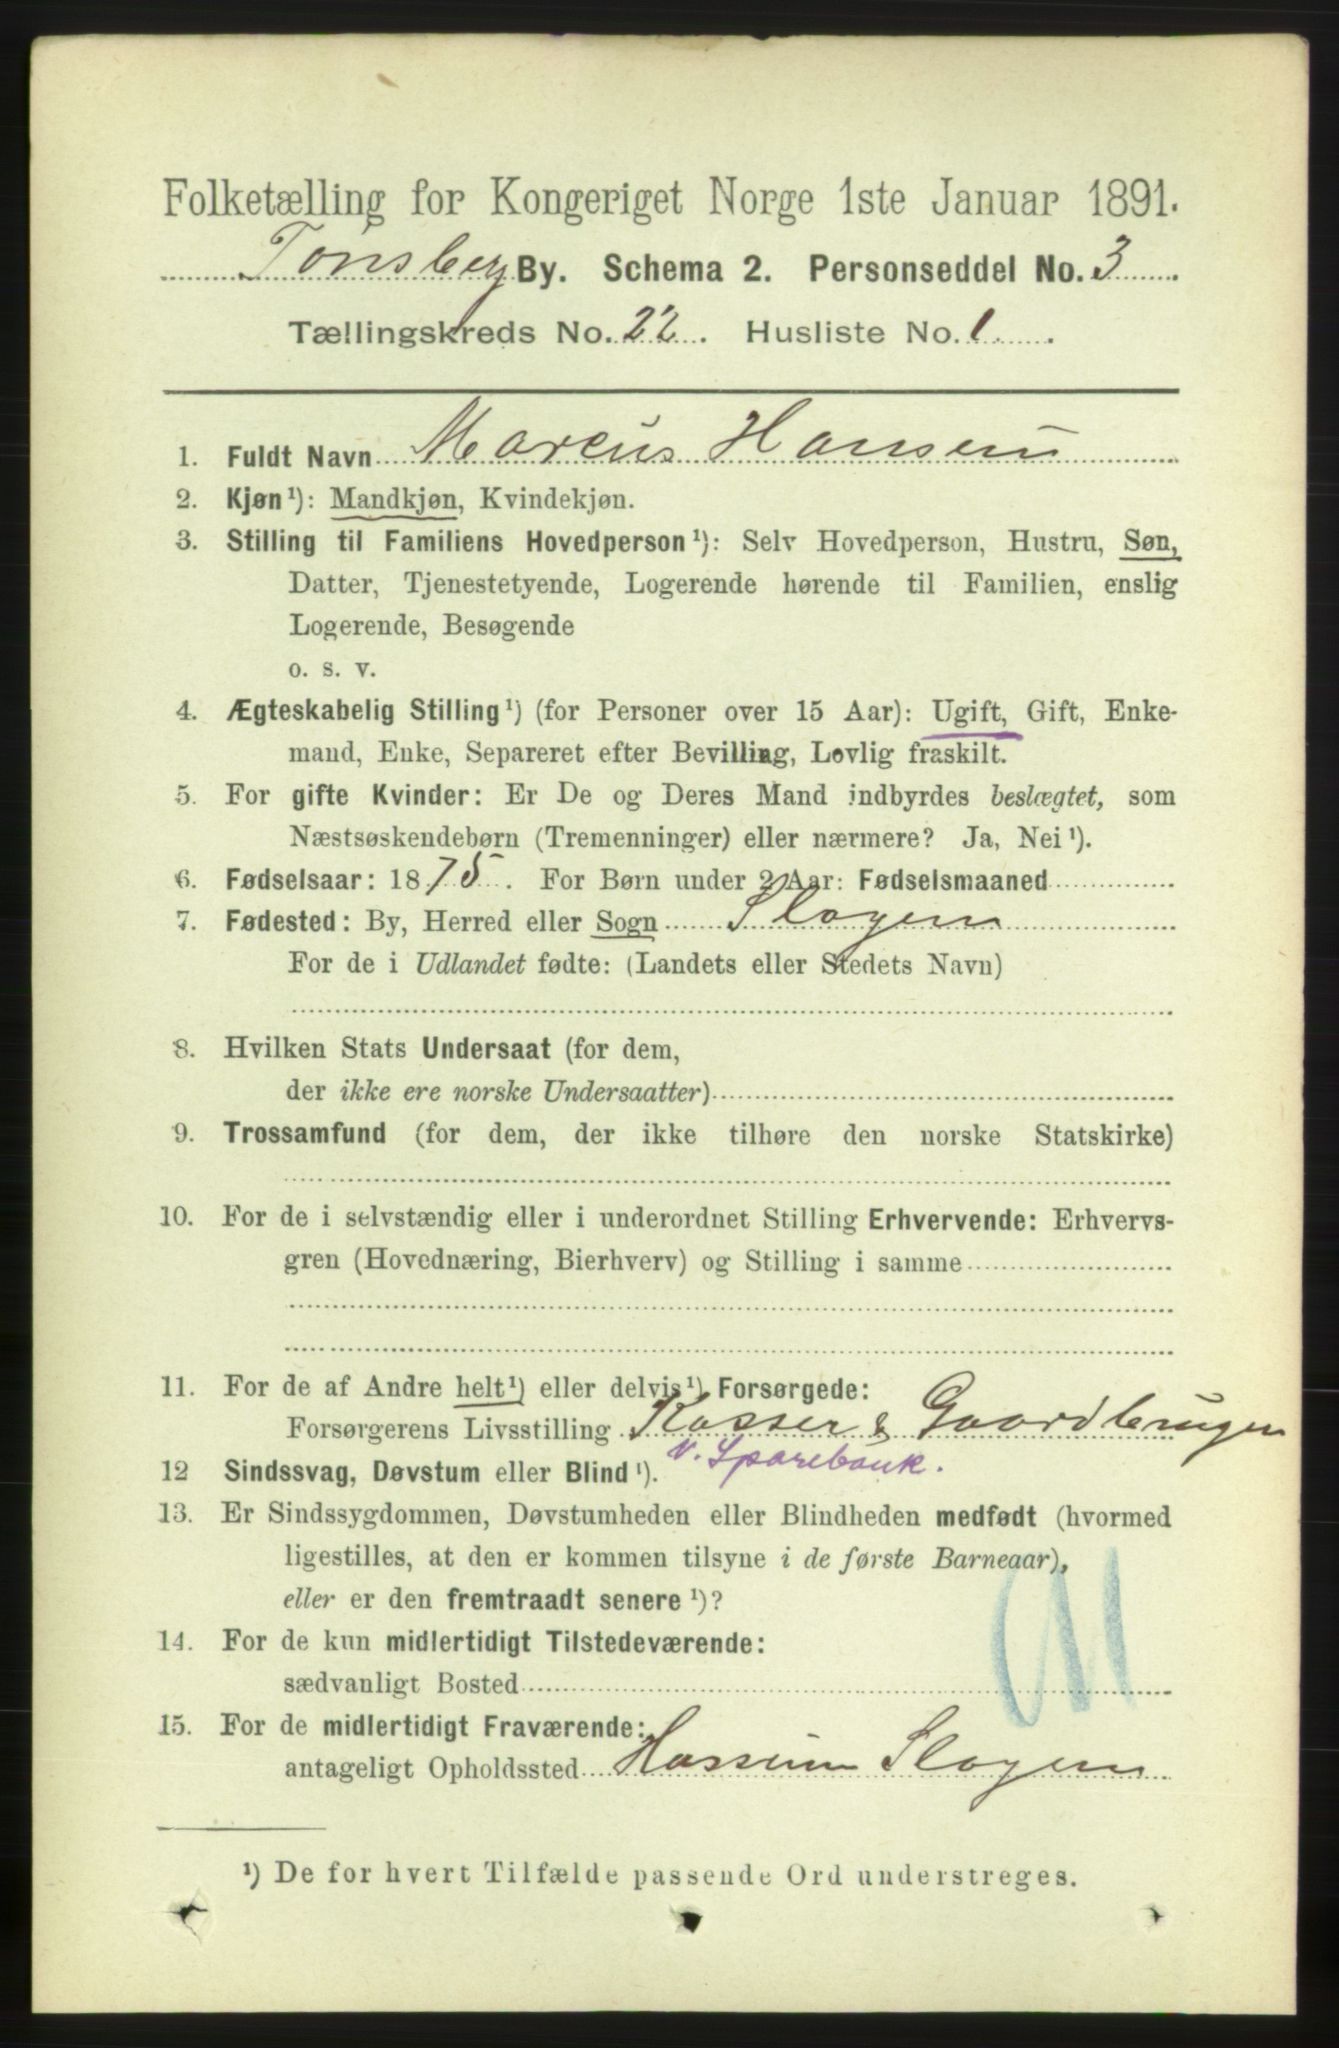 Folketælling for Kongeriget Norge 1ste Januar 1891.
Tønsberg By. Schema 2. Personseddel No. 3
Tællingskreds No. 22. Husliste No. 1
1. Fuldt Navn Marcus Hansen
2. Kjøn¹): Mandkjøn, Kvindekjøn.
3. Stilling til Familiens Hovedperson¹): Selv Hovedperson, Hustru, Søn,
Datter, Tjenestetyende, Logerende hørende til Familien, enslig
Logerende, Besøgende
o. s. v.
4. Ægteskabelig Stilling¹) (for Personer over 15 Aar): Ugift, Gift, Enke-
mand, Enke, Separeret efter Bevilling, Lovlig fraskilt.
5. For gifte Kvinder: Er De og Deres Mand indbyrdes beslægtet, som
Næstsøskendebørn (Tremenninger) eller nærmere? Ja, Nei¹).
6. Fødselsaar: 1875. For Børn under 2 Aar: Fødselsmaaned
7. Fødested: By, Herred eller Sogn Slagen
For de i Udlandet fødte: (Landets eller Stedets Navn)
8. Hvilken Stats Undersaat (for dem,
der ikke ere norske Undersaatter)
9. Trossamfund (for dem, der ikke tilhøre den norske Statskirke)
10. For de i selvstændig eller i underordnet Stilling Erhvervende: Erhvervs-
gren (Hovednæring, Bierhverv) og Stilling i samme
11. For de af Andre helt¹) eller delvis¹) Forsørgede:
Forsørgerens Livsstilling Kasser & Gaardbruger
v. Sparebank.
12 Sindssvag, Døvstum eller Blind¹).
13. Er Sindssygdommen, Døvstumheden eller Blindheden medfødt (hvormed
ligestilles, at den er kommen tilsyne i de første Barneaar),
eller er den fremtraadt senere¹)?
14. For de kun midlertidigt Tilstedeværende:
sædvanligt Bosted
15. For de midlertidigt Fraværende:
antageligt Opholdssted Hassum Slagen
¹) De for hvert Tilfælde passende Ord understreges.